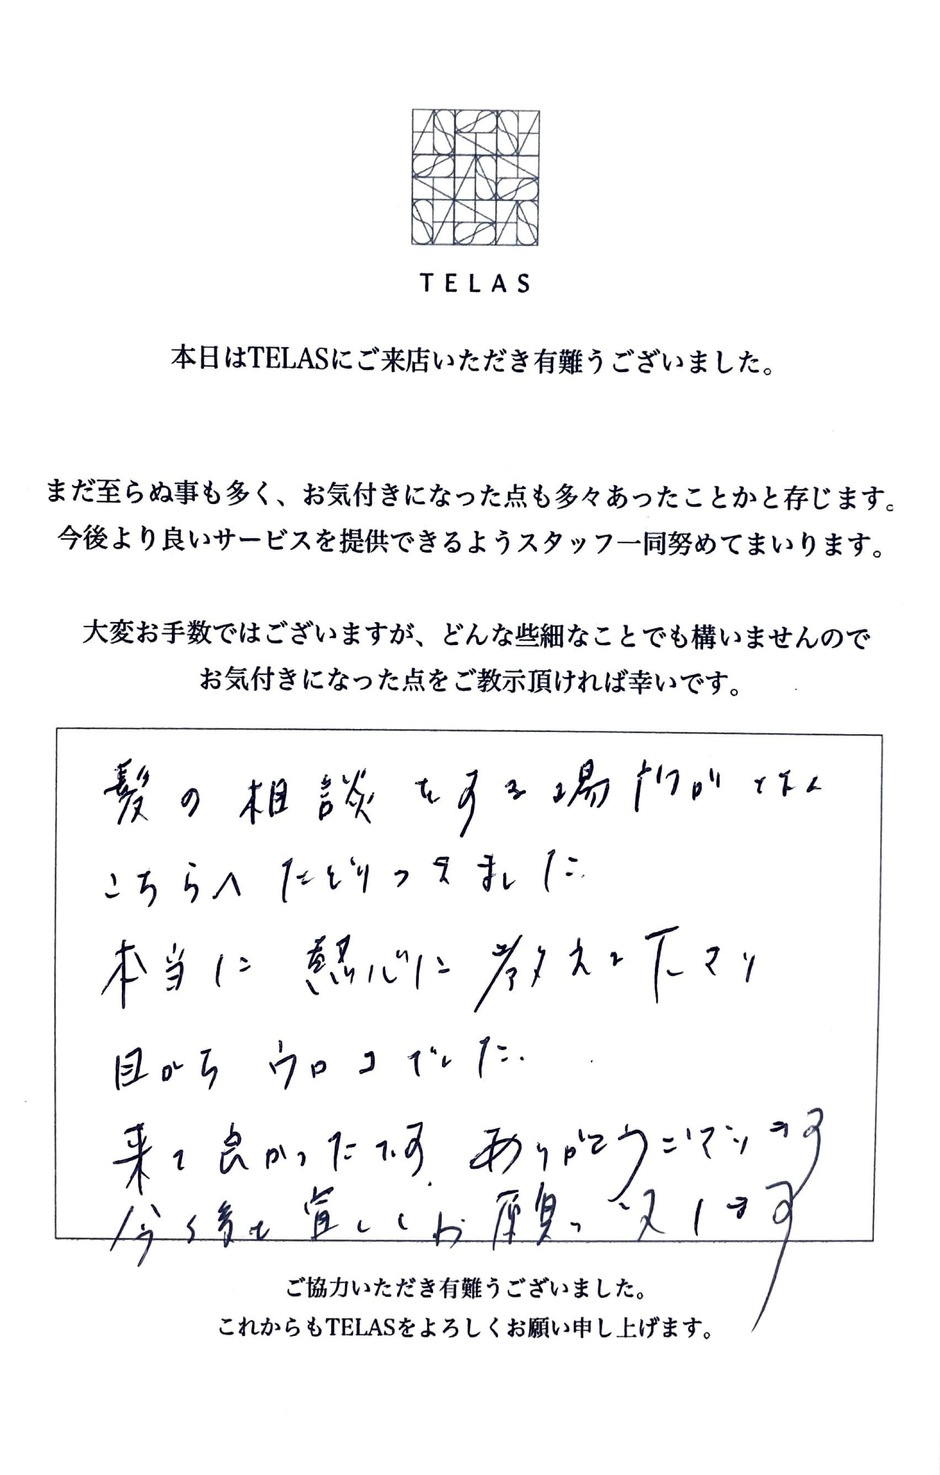 TELAS
本日はTELASにご来店いただき有難うございました。
まだ至らぬ事も多く、お気付きになった点も多々あったことかと存じます。
今後より良いサービスを提供できるようスタッフ一同努めてまいります。
大変お手数ではございますが、どんな些細なことでも構いませんので
お気付きになった点をご教示頂ければ幸いです。
髪の相談をする場所がなく
こちらへたどりつきました
本当に熱心に教えて下さり
目からウロコでした.
来て良かったです.ありがとうございます
今後も宜しくお願い致します
ご協力いただき有難うございました。
これからもTELASをよろしくお願い申し上げます。